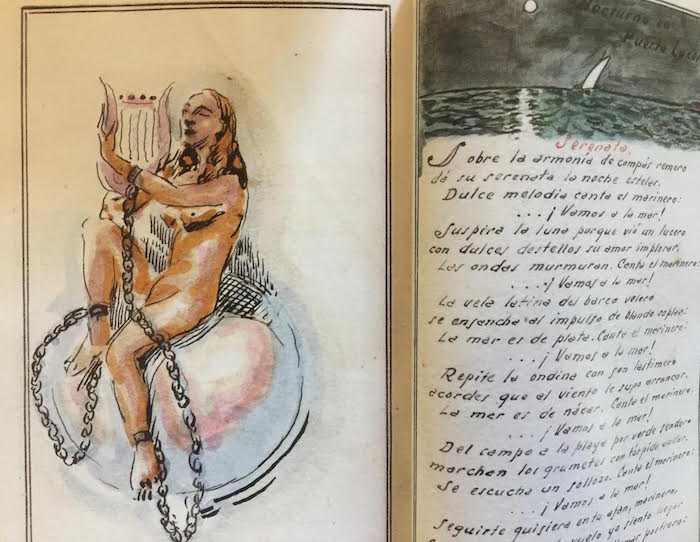 Nocturno en
Puerto
Serenata.
Sobre la armonía de compás remero
dá su serenata la noche estelar.
Dulce melodía canta el marinero:
...¡Vamos a la mar!
Suspira la luna porque vió un lucero
con dulces destellos su amor implorar.
Las ondas murmuran. Canta el marinero:
...¡Vamos a la mar!
La vela latina del barco velero
se ensancha al impulso de blando soplar.
La mar es de plata. Canta el marinero:
...¡Vamos a la mar!
Repite la ondina con son lastimero
acordes que al viento le supo arrancar.
La mar es de nácar. Canta el marinero:
...¡Vamos a la mar!
Del campo a la playa por verde sendero
marchan los grumetes con torpe andar.
Se escucha un sollozo. Canta el marinero:
...¡Vamos, a la mar!
Seguirte quisiera en tu afán, marinero,
vuelo yo siento llegar